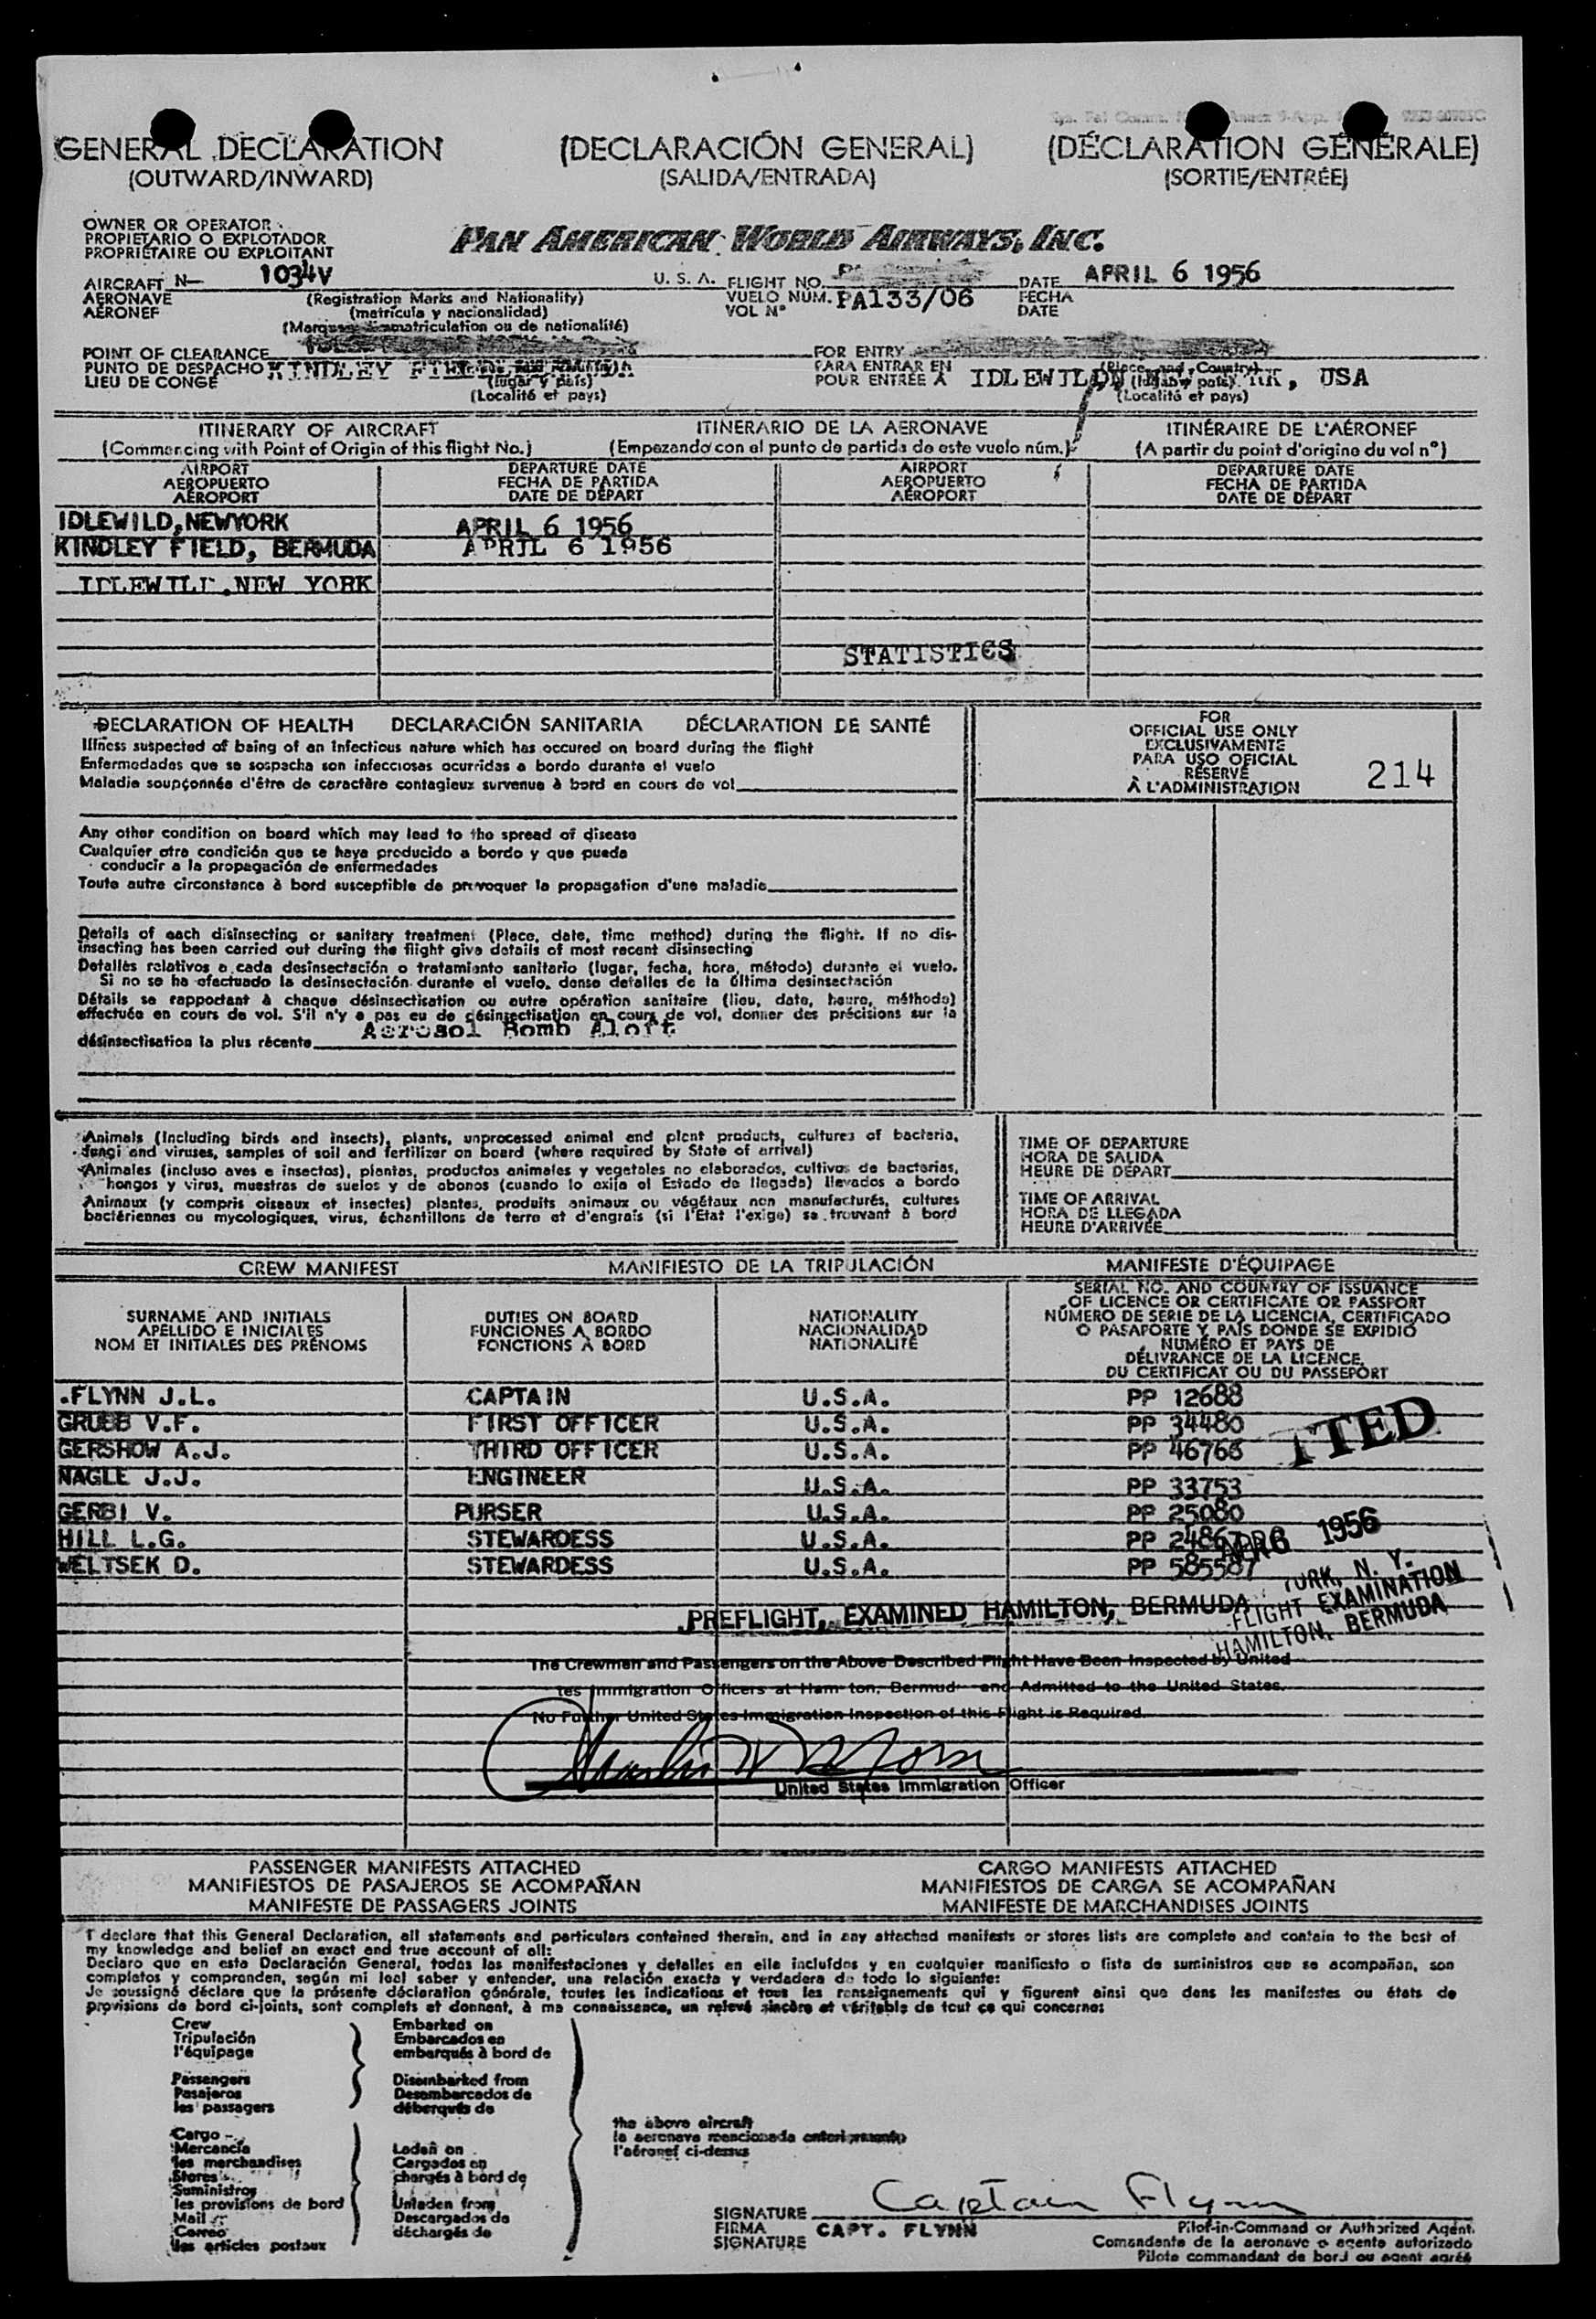 GENERAL DECLARATION (DECLARACIÓN GENERAL) (DÉCLARATION GÉNÉRALE)
(OUTWARD/INWARD) (SALIDA/ENTRADA) (SORTIE/ENTRÉE)
OWNER OR OPERATOR
PROPIETARIO O EXPLOTADOR
PROPRIÉTAIRE OU EXPLOITANT
PAN AMERICAN WORLD AIRWAYS, INC.
AIRCRAFT N— 1034V U. S. A. FLIGHT NO. DATE APRIL 6 1956
AERONAVE (Registration Marks and Nationality) VUELO NÚM. PA133/06 FECHA
AÉRONEF (matrícula y nacionalidad) VOL Nº DATE
POINT OF CLEARANCE FOR ENTRY
PUNTO DE DESPACHO KINDLEY PARA ENTRAR EN
LIEU DE CONGÉ (lugar y país) POUR ENTRÉE A IDLEWILD, USA
(Localité et pays) (Localité et pays)
ITINERARY OF AIRCRAFT ITINERARIO DE LA AERONAVE ITINÉRAIRE DE L'AÉRONEF
(Commencing with Point of Origin of this flight No.) (Empezando con el punto de partida de este vuelo núm.) (A partir du point d'origine du vol nº)
AIRPORT DEPARTURE DATE AIRPORT DEPARTURE DATE
AEROPUERTO FECHA DE PARTIDA AEROPUERTO FECHA DE PARTIDA
AÉROPORT DATE DE DÉPART AÉROPORT DATE DE DÉPART
IDLEWILD,NEWYORK APRIL 6 1956
KINDLEY FIELD, BERMUDA APRIL 6 1956
IDLEWILD,NEW YORK
STATISTICS
DECLARATION OF HEALTH DECLARACIÓN SANITARIA DÉCLARATION DE SANTÉ
Illness suspected of being of an Infectious nature which has occured on board during the flight
Enfermedades que se sospecha son infecciosas ocurridas a bordo durante el vuelo
Maladie soupçonnée d'être de caractère contagieux survenue à bord en cours de vol
FOR
OFFICIAL USE ONLY
EXCLUSIVAMENTE
PARA USO OFICIAL
RÉSERVÉ
À L'ADMINISTRATION
214
Any other condition on board which may lead to the spread of disease
Cualquier otra condición que se haya producido a bordo y que pueda
conducir a la propagación de enfermedades
Toute autre circonstance à bord susceptible de provoquer la propagation d'une maladie
Details of each disinsecting or sanitary treatment (Place, date, time method) during the flight. If no dis-
insecting has been carried out during the flight give details of most recent disinsecting
Detalles relativos a cada desinsectación o tratamiento sanitario (lugar, fecha, hora, método) durante el vuelo.
Si no se ha efectuado la desinsectación durante el vuelo, dense detalles de la última desinsectación
Détails se rapportant à chaque désinsectisation ou autre opération sanitaire (lieu, date, heure, méthode)
effectuée en cours de vol. S'il n'y a pas eu de désinsectisation en cours de vol, donner des précisions sur la
désinsectisation la plus récente Aerosol Bomb Aloft
Animals (Including birds and insects), plants, unprocessed animal and plant products, cultures of bacteria,
fungi and viruses, samples of soil and fertilizer on board (where required by State of arrival)
Animales (incluso aves e insectos), plantas, productos animales y vegetales no elaborados, cultivos de bacterias,
hongos y virus, muestras de suelos y de abonos (cuando lo exija el Estado de llegada) llevados a bordo
Animaux (y compris oiseaux et insectes) plantes, produits animaux ou végétaux non manufacturés, cultures
bactériennes ou mycologiques, virus, échantillons de terre et d'engrais (si l'Etat l'exige) se trouvant à bord
TIME OF DEPARTURE
HORA DE SALIDA
HEURE DE DÉPART
TIME OF ARRIVAL
HORA DE LLEGADA
HEURE D'ARRIVÉE
CREW MANIFEST MANIFIESTO DE LA TRIPULACIÓN MANIFESTE D'ÉQUIPAGE
SURNAME AND INITIALS
APELLIDO E INICIALES
NOM ET INITIALES DES PRÉNOMS
DUTIES ON BOARD
FUNCIONES A BORDO
FONCTIONS À BORD
NATIONALITY
NACIONALIDAD
NATIONALITÉ
SERIAL NO. AND COUNTRY OF ISSUANCE
OF LICENCE OR CERTIFICATE OR PASSPORT
NÚMERO DE SERIE DE LA LICENCIA, CERTIFICADO
O PASAPORTE Y PAÍS DONDE SE EXPIDIÓ
NUMÉRO ET PAYS DE
DÉLIVRANCE DE LA LICENCE,
DU CERTIFICAT OU DU PASSEPORT
FLYNN J.L. CAPTAIN U.S.A. PP 12688
GRUBB V.F. FIRST OFFICER U.S.A. PP 34480
GERSHOW A.J. THIRD OFFICER U.S.A. PP 46768
NAGLE J.J. ENGINEER U.S.A. PP 33753
GERBI V. PURSER U.S.A. PP 25080
HILL L.G. STEWARDESS U.S.A. PP
WELTSEK D. STEWARDESS U.S.A. PP 585587
TTED
1956
YORK, N. Y.
FLIGHT EXAMINATION
HAMILTON, BERMUDA
PREFLIGHT, EXAMINED HAMILTON, BERMUDA
The Crewmen and Passengers on the Above Described Flight Have Been Inspected by United
tes Immigration Officers at Ham ton, Bermud and Admitted to the United States.
No Further United States Immigration Inspection of this Flight is Required
United States Immigration Officer
PASSENGER MANIFESTS ATTACHED CARGO MANIFESTS ATTACHED
MANIFIESTOS DE PASAJEROS SE ACOMPAÑAN MANIFIESTOS DE CARGA SE ACOMPAÑAN
MANIFESTE DE PASSAGERS JOINTS MANIFESTE DE MARCHANDISES JOINTS
I declare that this General Declaration, all statements and particulars contained therein, and in any attached manifests or stores lists are complete and contain to the best of
my knowledge and belief an exact and true account of all:
Declaro que en esta Declaración General, todas las manifestaciones y detalles en ella incluídos y en cualquier manifiesto o lista de suministros que se acompañan, son
completos y comprenden, según mi leal saber y entender, una relación exacta y verdadera de todo lo siguiente:
Je soussigné déclare que la présente déclaration générale, toutes les indications et tous les renseignements qui y figurent ainsi que dans les manifestes ou états de
provisions de bord ci-joints, sont complets et donnent, à ma connaissance, un relevé sincère et véritable de tout ce qui concerne:
Crew Embarked on
Tripulación Embarcados en
l'équipage embarqués à bord de
Passengers Disembarked from
Pasajeros Desembarcados de
les passagers débarqués de
the above aircraft
la aeronave mencionada anteriormente
l'aéronef ci-dessus
Cargo
Mercancía Laden on
les marchandises Cargados en
Stores chargés à bord de
Suministros
les provisions de bord Unladen from
Mail Descargados de
Correo déchargés de
les articles postaux
SIGNATURE Captain Flynn
FIRMA CAPT. FLYNN
SIGNATURE
Pilot-in-Command or Authorized Agent.
Comandante de la aeronave o agente autorizado
Pilote commandant de bord ou agent agréé